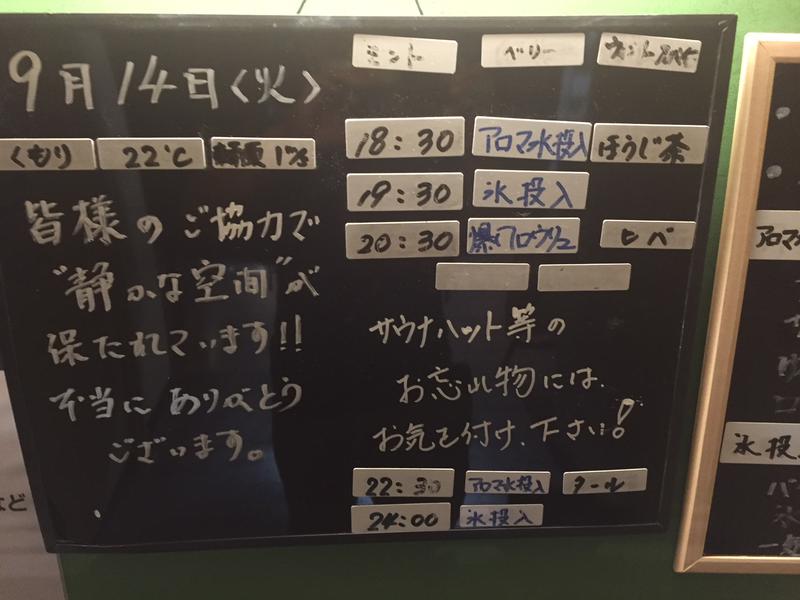 9月14日〈火〉
くもり 22℃
皆様のご協力で
"静かな空間"が
保たれています!!
本当にありがとう
ございます。
ミント ベリー
18:30 アロマ水投入 ほうじ茶
19:30 氷投入
20:30 爆アロウリュ ヒバ
サウナハット等の
お忘れ物には、
お気を付け下さい!
22:30 アロマ水投入 タール
24:00 氷投入
など
アロマ
氷投入